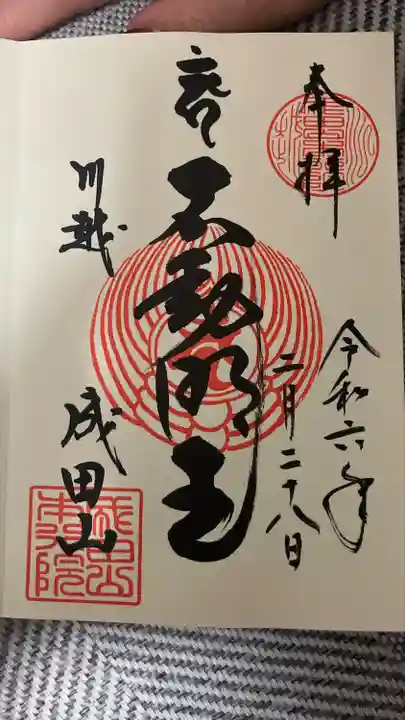 奉拝
令和六年
二月二十八日
不動明王
川越
成田山
成田山
本行院